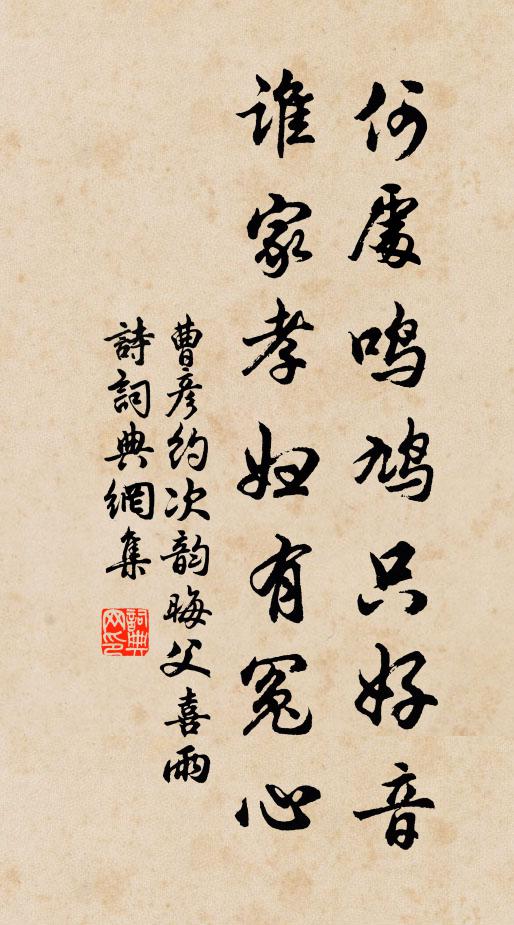 何處鳴鳩只好音
誰家孝婦有冤心
曹彦約次韵晦父喜雨
詩詞典網集
詞典网印